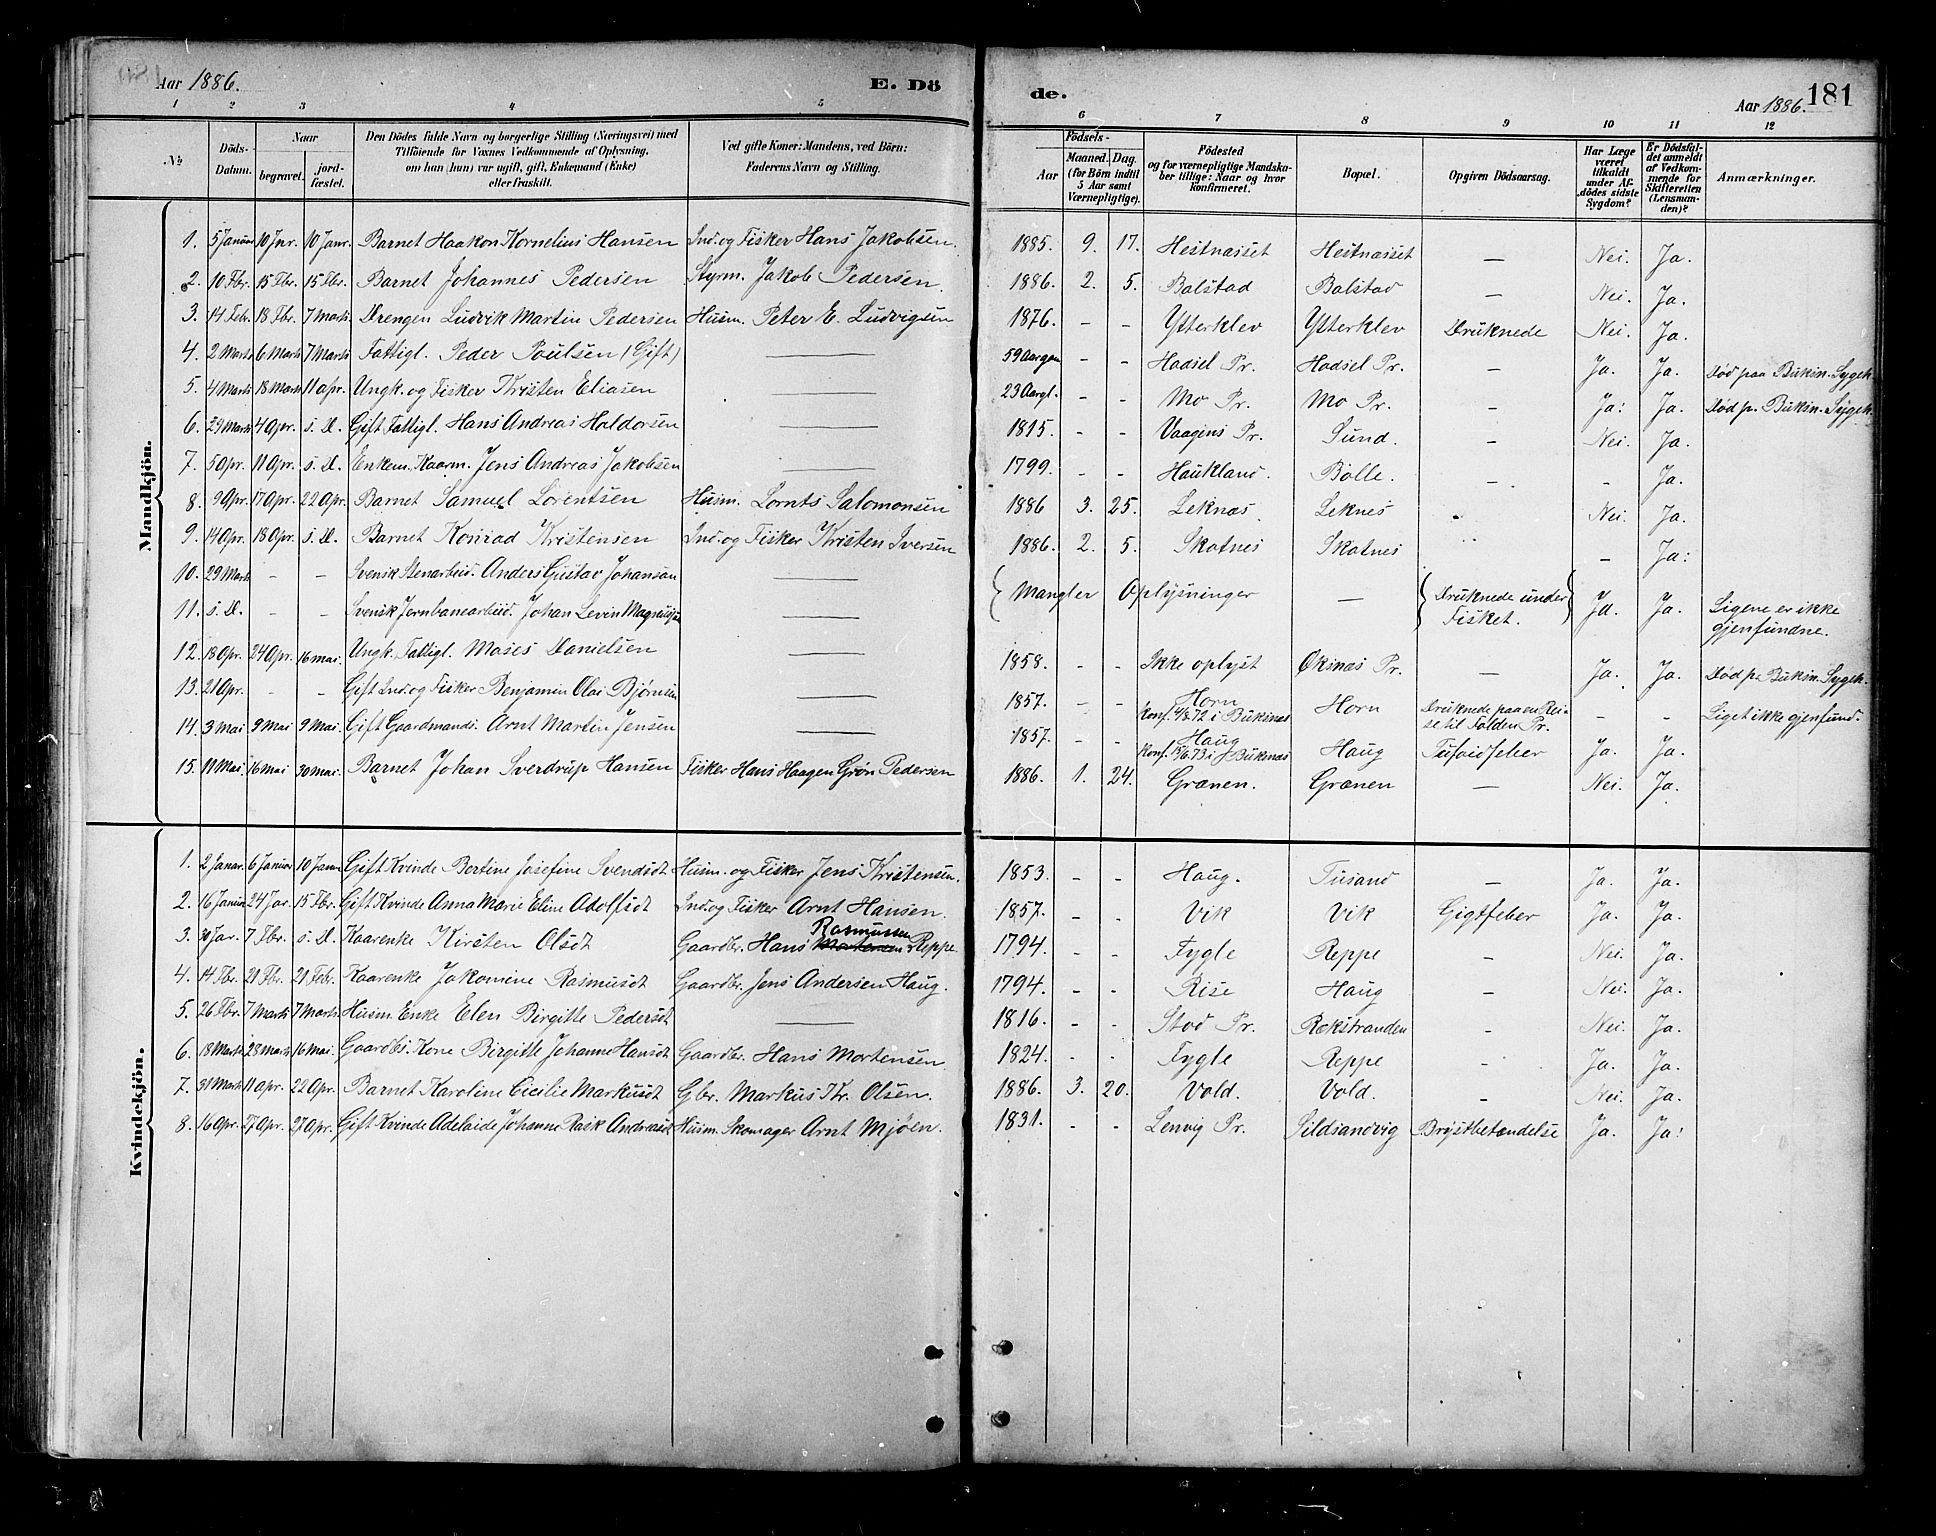 Aar 1886. E. Dö
1 2 3 4 5
№ Döds-Datum. Naar begravet. jordfæstet. Den Dödes fulde Navn og borgerlige Stilling (Næringsvei) med Tilföiende for Voxnes Vedkommende af Oplysning, om han (hun) var ugift, gift, Enkemand (Enke) eller fraskilt. Ved gifte Koner: Mandens, ved Börn: Faderens Navn og Stilling.
Mandkjön.
1. 5 Januar 10 Jnr. 10 Janr. Barnet Haakon Kornelius Hansen Ind. og Fisker Hans Jakobsen.
2. 10 Fbr. 15 Fbr. 15 Fbr. Barnet Johannes Pedersen Styrm. Jakob Pedersen.
3. 14 Feb. 18 Fbr. 7 Marts Drengen Ludvik Martin Pedersen Husm. Peter E. Ludvigsen
4. 2 Marts 6 Marts 7 Marts Fattigl. Peder Poulsen (Gift) —
5. 4 Marts 18 Marts 11 Apr. Ungk. og Fisker Kristen Eliasen —
6. 29 Marts 4 Apr. s. D. Gift Fattigl. Hans Andreas Haldorsen —
7. 5 Apr. 11 Apr. s. D. Enkem. Kaarm. Jens Andreas Jakobsen —
8. 9 Apr. 17 Apr. 22 Apr. Barnet Samuel Lorentsen Husm. Lornts Salomonsen
9. 14 Apr. 18 Apr. s. D. Barnet Konrad Kristensen Ind. og Fisker Kristen Iversen
10. 29 Marts - - Svensk Stenarbeid. Anders Gustav Johanson —
11. s. D. - - Svensk Jernbanearbeid. Johan Levin Magnusson —
12. 18 Apr. 24 Apr. 16 Mai. Ungk. Fattigl. Moses Danielsen —
13. 21 Apr. - - Gift Ind. og Fisker Benjamin Olai Bjørnsen —
14. 3 Mai 9 Mai 9 Mai Gift Gaardmands. Arnt Martin Jensen —
15. 11 Mai 16 Mai 30 Mai. Barnet Johan Sverdrup Hansen Fisker Hans Haagen Grøn Pedersen
Kvindekjön.
1. 2 Januar. 6 Januar 10 Janua Gift Kvinde Bertine Josefine Svendsdt Husm. og Fisker Jens Kristensen.
2. 16 Januar 24 Jar. 15 Fbr. Gift Kvinde Anna Marie Eline Adolfsdt Ind. og Fisker Arnt Hansen.
3. 30 Jar. 7 Fbr. s. D. Kaarenke Kirsten Olsdt Gaardbr. Hans Rasmussen Reppe.
4. 14 Fbr. 21 Fbr. 21 Fbr. Kaarenke Jakomine Rasmusdt Gaardbr. Jens Andersen Haug.
5. 26 Fbr. 7 Marts 7 Marts Husm. Enke Elen Birgitte Pedersdt —
6. 18 Marts 28 Marts 16 Mai. Gaardbs. Kone Birgitte Johanne Hansdt Gaardbr. Hans Mortensen
7. 31 Marts 11 Apr. 22 Apr. Barnet Karoline Cicilie Markusdt Gbr. Markus Kr. Olsen.
8. 16 Apr. 27 Apr. 27 Apr. Gift Kvinde Adelaide Johanne Rask Andreasdt Husm. Skomager Arnt Mjøen.
de. Aar 1886. 181
6 7 8 9 10 11 12
Födsels- Aar Maaned. Dag. (for Börn indtil 5 Aar samt Værnepligtige). Födested og for værnepligtige Mandskaber tillige: Naar og hvor konfirmeret. Bopæl. Opgiven Dödsaarsag. Har Læge været tilkaldt under Afdödes sidste Sygdom? Er Dödsfaldet anmeldt af Vedkommende for Skifteretten (Lensmanden)? Anmærkninger.
1885. 9. 17. Hestnæsset Hestnæsset — Nei. Ja.
1886. 2. 5. Balstad Balstad — Nei. Ja.
1876. - - Ytterklev Ytterklev Druknede Nei. Ja.
59 Aar gam - - Hadsel Pr. Hadsel Pr. — Ja. Ja. Død paa Buksn. Sygeh.
23 Aar gl. - - Mo Pr. Mo Pr. - Ja: Ja. Død p. Buksn. Sygeh.
1815. - - Vaagens Pr. Sund. - Nei. Ja.
1799. - - Haukland. Bolle. - - Ja.
1886 3. 25. Leknæs. Leknes Nei. Ja.
1886. 2. 5. Skotnes Skotnes - Ja:
Mangler Oplysninger — Druknede under Fisket. Ja. Ja. Ligene er ikke gjenfundne.
1858. - - Ikke oplyst Øksnæs Pr. — Ja. Ja. Død p. Buksn. Sygeh.
1857. - - Horn Konf. 4/8 72 i Buksnæs Horn Druknede paa en Reise til Folden Pr. - - Liget ikke gjenfund.
1857. - - Haug Konf. 15/6 73 i Buksnæs Haug Tufoidfeber Ja. Ja.
1886. 1. 24. Grænen. Grænen — Nei. Ja.
1853. - - Haug. Tusand — Ja. Ja.
1857. - - Vik Vik Gigtfeber Ja. Ja.
1794. - - Fygle Reppe - Nei. Ja.
1794. - - Rise Haug - Nei. Ja.
1816. - - Stod Pr. Rækstranden - Nei. Ja.
1824. - - Fygle Reppe - Ja. Ja.
1886. 3. 20. Vold. Vold. - Nei. Ja.
1831. - - Lenvig Pr. Sildsandvig Brystbetændelse Ja. Ja: